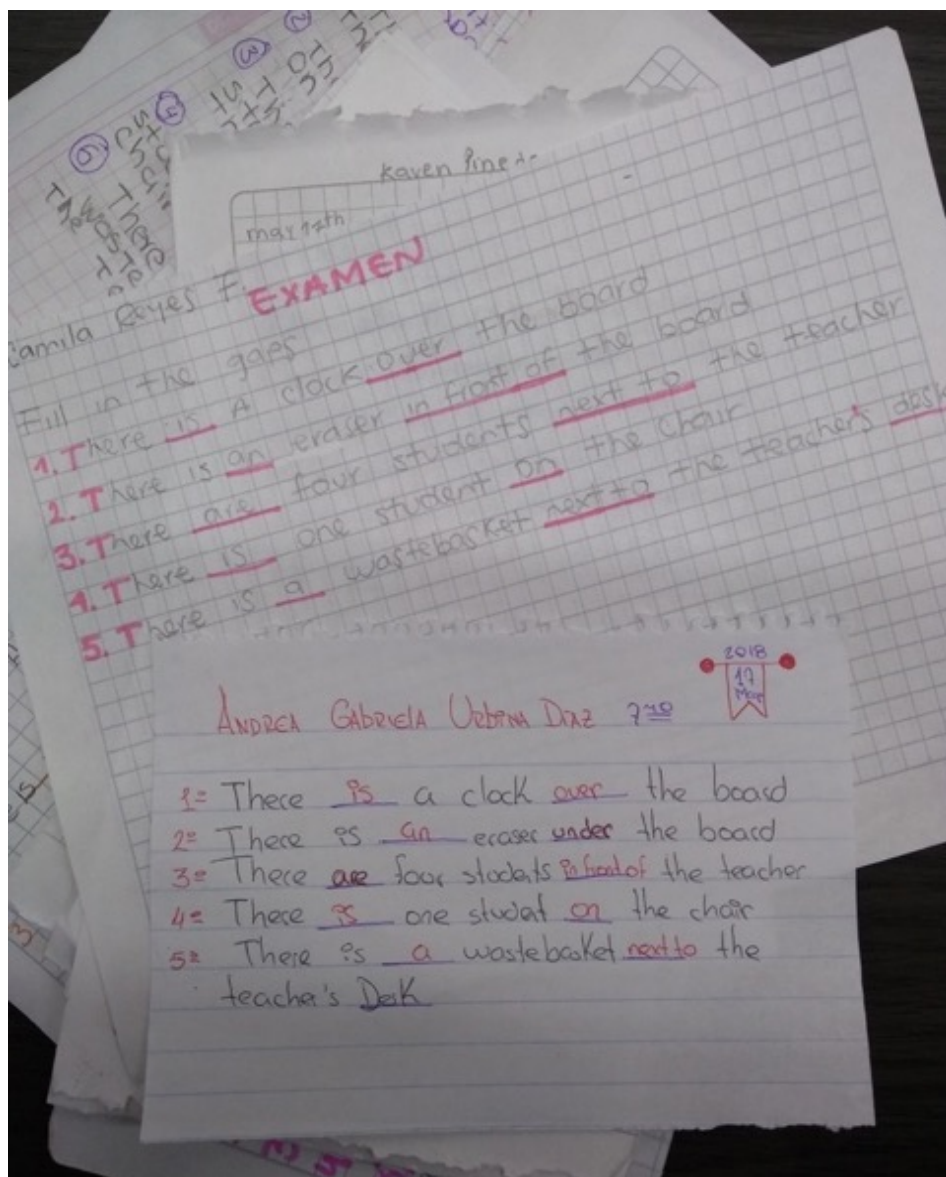 Karen
may 17th
Camila Reyes F.
EXAMEN
Fill in the gaps
1. There is A clock over the board
2. There is an eraser in front of the board
3. There are four students next to the teacher
4. There is one student on the chair
5. There is a wastebasket next to the teacher's desk
2018
17
May
ANDREA GABRIELA URBINA DIAZ 7mo
1= There is a clock over the board
2= There is an eraser under the board
3= There are four students in front of the teacher
4= There is one student on the chair
5= There is a wastebasket next to the
teacher's Desk